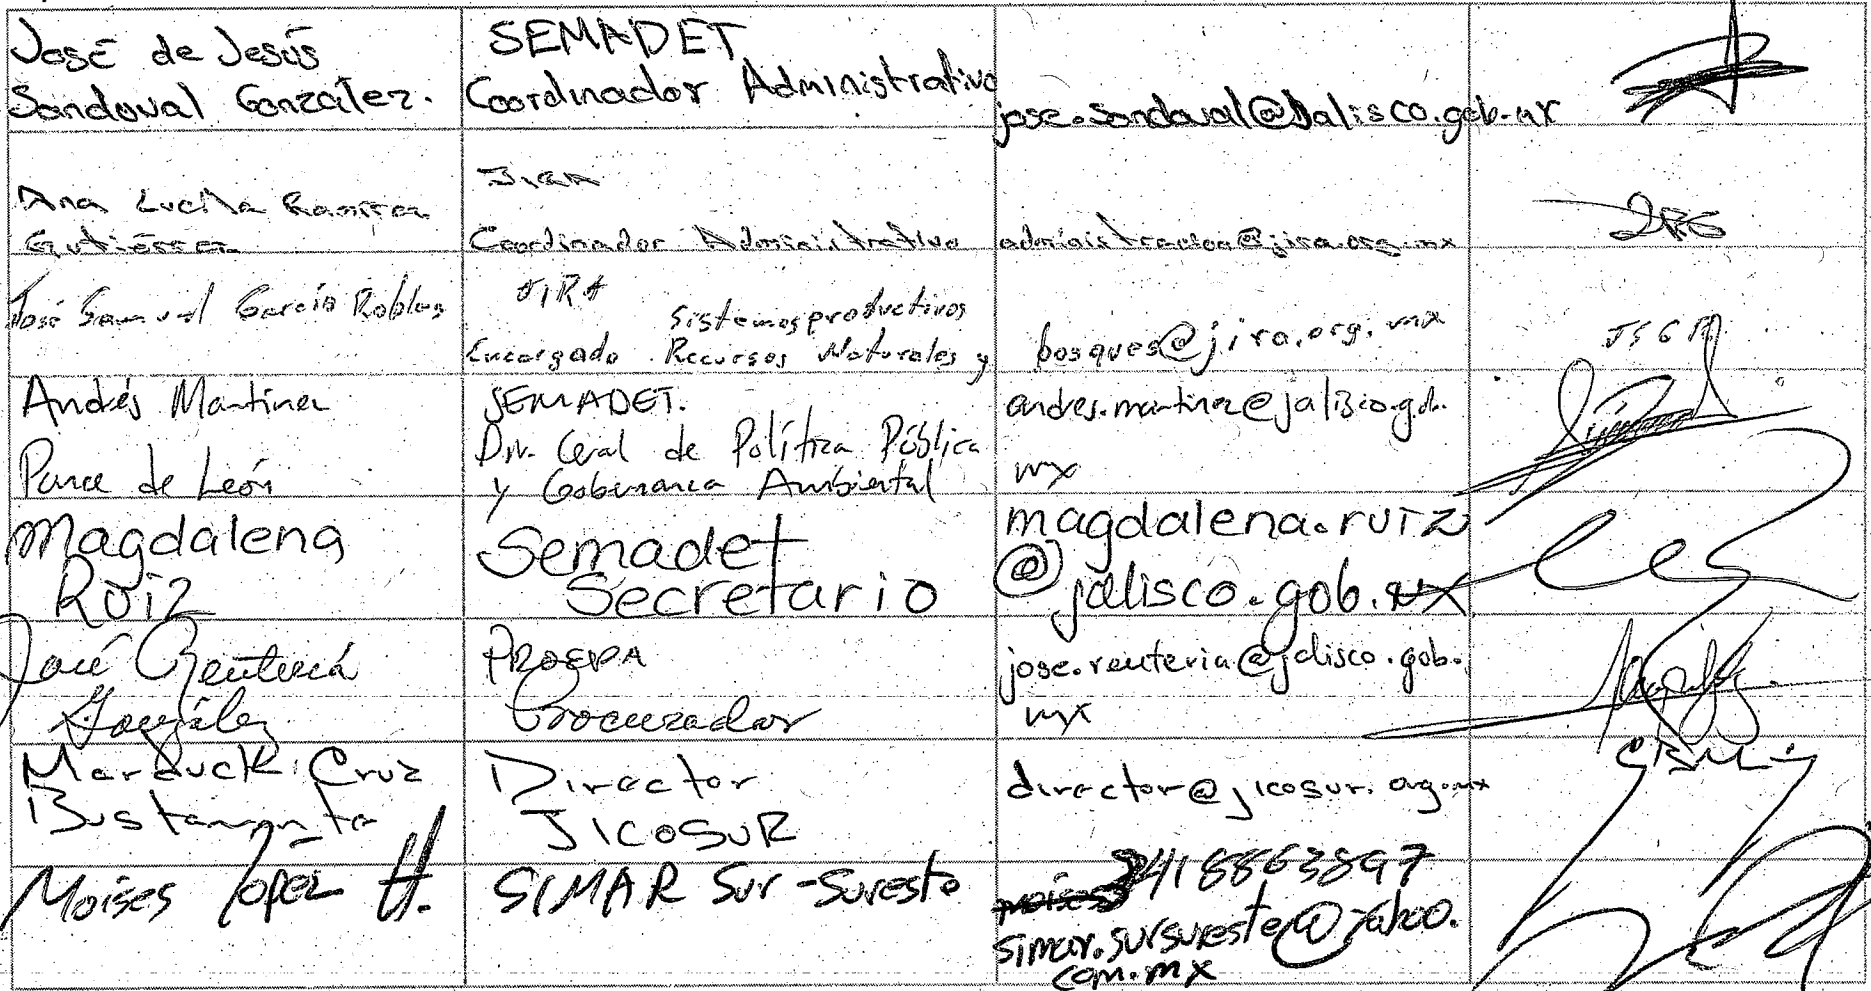 José de Jesús
Sandoval González.
SEMADET
Coordinador Administrativo
jose.sandoval@jalisco.gob.mx
Ana Lucila Ramírez
Gutiérrez
JIRA
Coordinador Administrativo
administracion@jira.org.mx
2RG
José Samuel García Robles
JIRA
Sistemas productivos
Encargado Recursos Naturales y
bosques@jira.org.mx
JSGR
Andrés Martínez
Ponce de León
SEMADET.
Dir. Gral de Política Pública
y Gobernanza Ambiental
andres.martinez@jalisco.gob.
mx
Magdalena
Ruiz
Semadet
Secretario
magdalena.ruiz
@jalisco.gob.mx
José Rentería
González
PROEPA
Procurador
jose.renteria@jalisco.gob.
mx
Marduck Cruz
Bustamante
Director
JICOSUR
director@jicosur.org.mx
Moises López H.
SIMAR Sur-Sureste
3418863897
simar.sursureste@yahoo.
com.mx